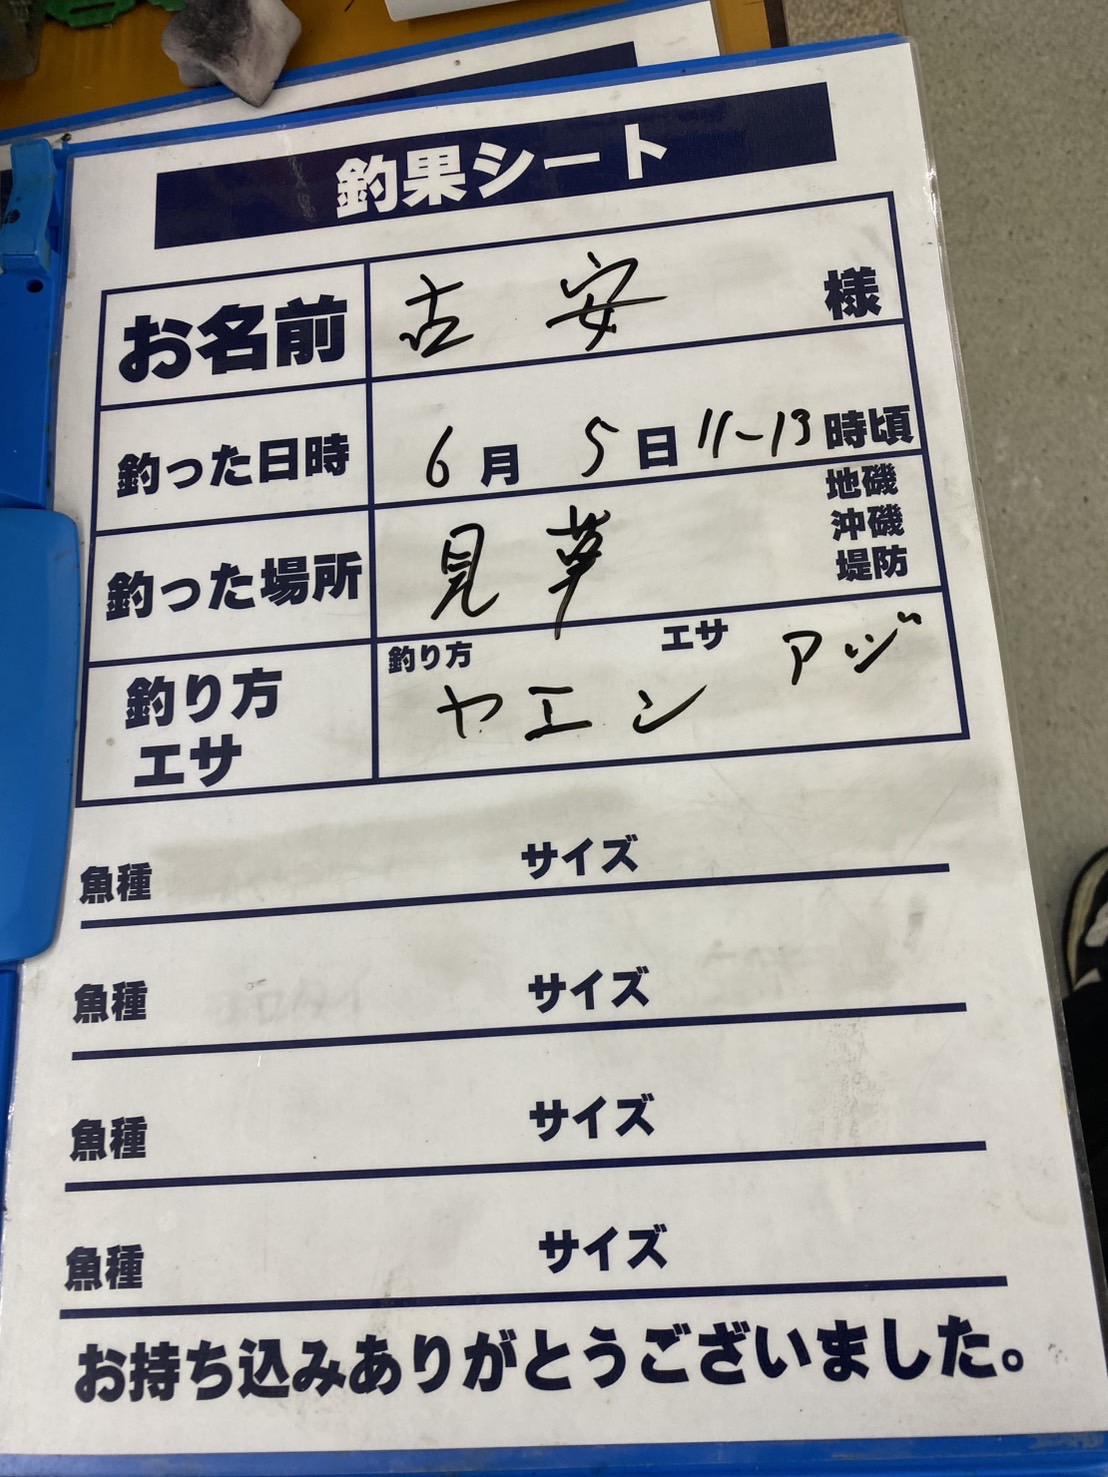 釣果シート
お名前 古安 様
釣った日時 6月 5日 11-13時頃
釣った場所 見草 地磯
沖磯
堤防
釣り方
エサ
釣り方 エサ アジ
ヤエン
魚種 サイズ
魚種 サイズ
魚種 サイズ
魚種 サイズ
お持ち込みありがとうございました。